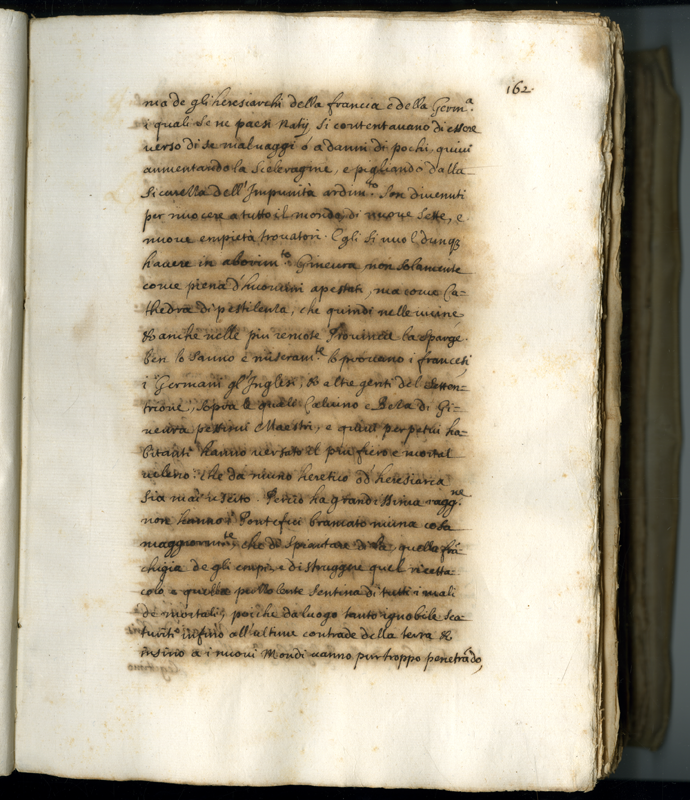 162
nia de gli heresiarchi della francia e della Germ.a
i quali se ne paesi natij si contentauano di essere
uerso di se maluaggi ò a danni di pochi, quiui
aumentando la sceleragine, e pigliando dalla
sicurella dell'Impunità ardim.to son diuenuti
per nuocere a tutto il mondo, di nuoue sette, e
nuoue empietà trouatori. Egli si uuol dunq3
hauere in abborim.to Gineura non solamente
come piena d'huomini apestati, ma come Ca=
thedra di pestilenza, che quindi nelle uicine
& anche nelle più remote Prouincie la sparge.
ben lo sanno e miseram.te lo prouano i francesi
i Germani gl'Inglesi, & altre genti del setten=
trione, sopra le quali Caluino e Beza di Gi=
neura pessimi Maestri, e quiui perpetui ha=
bitanti hanno uersato il più fiero e mortal
ueleno: che da niuno heretico od heresiarca
sia mai uscito. Perciò ha grandissima ragg.ne
non hanno i Pontefici bramato niuna cosa
maggiorm.te, che di spiantare di là quella frã
chigia de gli empi, e distruggere quel ricetta=
colo, e quella puzzolente sentina di tutti i mali
de mortali, poiche da luogo tanto ignobile sca=
turiti infino all'ultime contrade della terra &
insino a i nuoui Mondi uanno purtroppo penetrãdo,